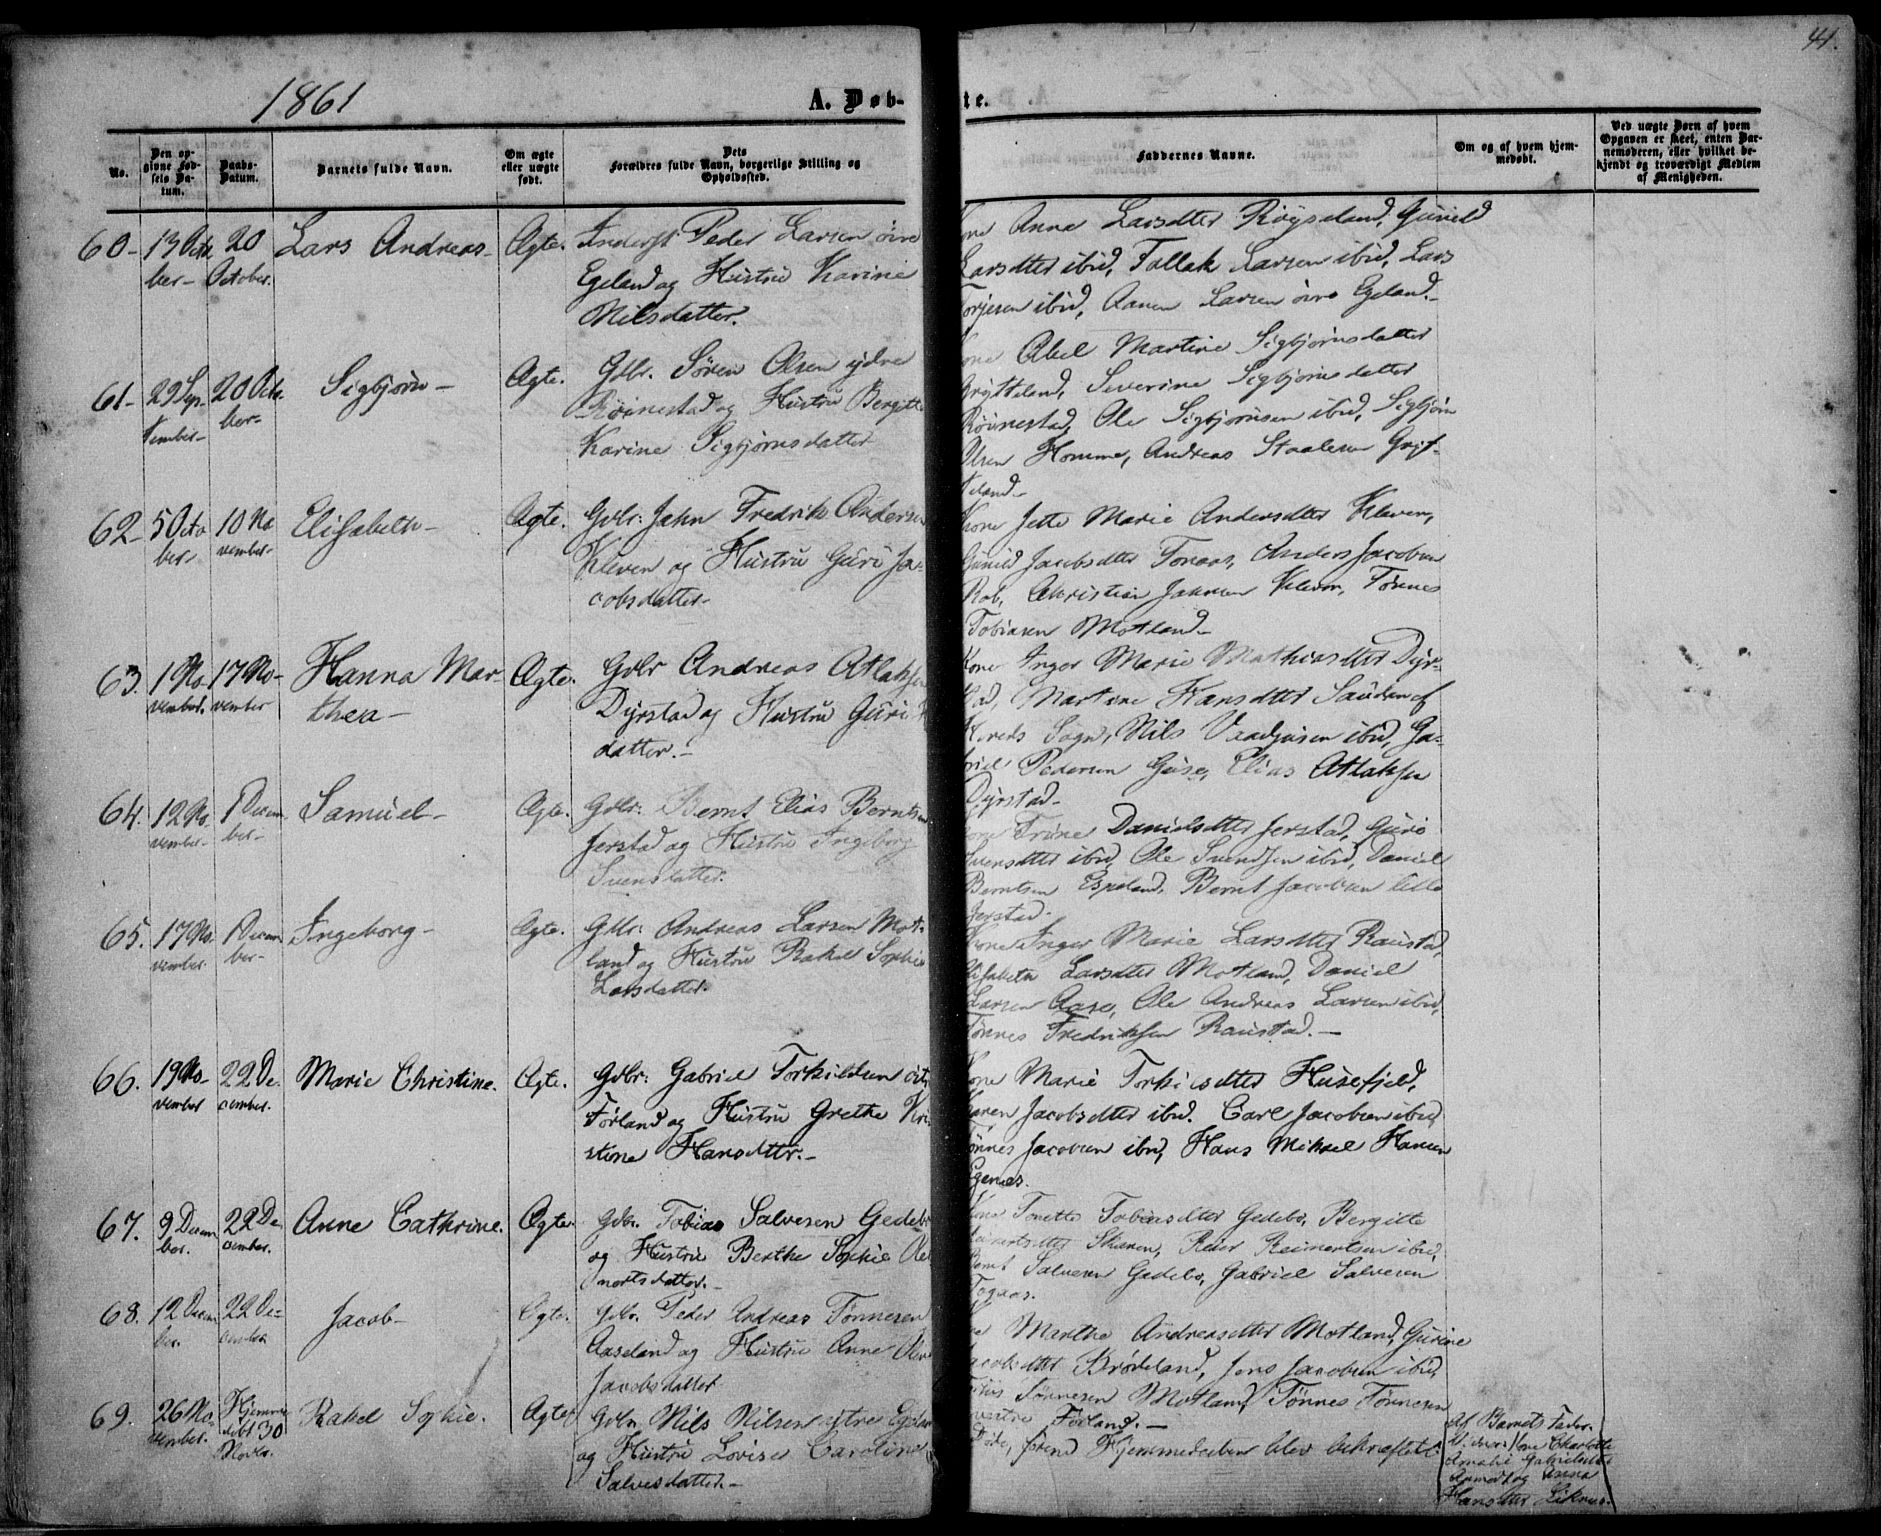 1861
A. Døb-
te.
41.
No.
Den op-
givne Fød-
sels Da-
tum.
Daabs-
Datum.
Barnets fulde Navn.
Om ægte
eller uægte
født.
Dets
Forældres fulde Navn, borgerlige Stilling og
Opholdssted.
Faddernes Navne.
Om og af hvem hjem-
medøbt.
Ved uægte Børn af hvem
Opgaven er skeet, enten Bar-
nemoderen, eller hvilket be-
kjendt og troværdigt Medlem
af Menigheden.
60- 13 Octo 20 Lars Andreas- Ægte. Peder Larsen øvre
ber- October. Egeland og Hustru Karine
Nilsdatter.
Kone Anna Larsdtter Røyseland, Gunild
Larsdtter ibid, Tallak Larsen ibid, Lars
Torjesen ibid, Aanen Larsen øvre Egeland.-
61- 29 Sep- 20 Octo Sigbjørn- Ægte. Gdbr. Søren Olsen ydre
tember- ber- Røinestad og Hustru Bergitte
Karine Sigbjørnsdatter
Kone Abel Martine Sigbjørnsdatter
Gryteland, Severine Sigbjørnsdatter
Røinestad, Ole Sigbjørnsen ibid, Sigbjørn
Olsen Homme, Andreas Staalesen Gryt-
teland-
62- 5 Octo 10 No Elisabeth- Ægte. Gdbr: Jahn Fredrik Andersen
ber- vember- Kleven og Hustru Guri Ja-
cobsdatter-
Kone Jette Marie Andersdtter Kleven,
Gunild Jacobsdtter Tonaas, Anders Jacobsen
Rob, Christian Jahnsen Kleven, Tønnes
Tobiasen Motland-
63. 1 No- 17 No- Hanna Mar- Ægte. Gdbr Andreas Atlaksen
vember. vember thea- Dyrstad og Hustru Guri
datter.-
Kone Inger Marie Mathiasdtter Dyr-
stad, Martine Hansdtter Sauden af
Sogn, Nils ibid, Ga-
briel Pedersen Guse, Elias Atlaksen
Dyrstad-
64. 12 No- 1 Decem Samuel- Ægte. Gdbr: Bernt Elias Berntsen
vember- ber- Jerstad og Hustru Ingeborg
Svensdatter.
Kone Trine Danielsdtter Jerstad, Guri
Svensdtter ibid, Ole Svendsen ibid, Daniel
Berntsen Espeland, Bernt Jacobsen lille
Jerstad-
65. 17 No- 1 Decem Ingeborg- Ægte. Gdbr: Andreas Larsen Mot-
vember- ber- land og Hustru Rakel Sophie
Larsdatter.
Kone Inger Marie Larsdtter Raustad,
Elisabeth Larsdtter Motland, Daniel
Larsen Aase, Ole Andreas Larsen ibid,
Tønnes Fredriksen Raustad.-
66. 19 No- 22 De- Marie Christine. Ægte. Gdbr: Gabriel Torkildsen
vember cember. Førland og Hustru Grethe Kri-
stine Hansdttr.-
Kone Marie Husefjeld,
Karen Jacobsdtter ibid. Carl Jacobsen ibid,
Tønnes Jacobsen ibid, Hans Mikael Hansen
Egenes.
67. 9 Decem 22 De- Anne Cathrine. Ægte. Gdbr. Tobias Salvesen Gedebo
ber. cember. og Hustru Berthe Sophie
datter.-
Kone Tonette Tobiasdtter Gedebo, Bergitte
Skaren, Reier Reimertsen ibid,
Bernt Salvesen Gedebo, Gabriel Salvesen
68. 12 Decem 22 De- Jacob- Ægte. Gdbr. Peder Andreas Tønnesen
ber. cember Aaseland og Hustru Anne
Jacobsdatter
Marthe Andreasdtter Motland, Gurine
Jacobsdtter Brødeland, Jens Jacobsen ibid,
Tønnesen Motland, Tønnes Tønnesen
vestre Førland.-
69. 26 No- Hjemme Rakel Sophie. Ægte. Gdbr. Nils Nilsen
vember. døbt 30 og Hustru Lovise Caroline
Novbr. Salvesdatter.-
Døde, førend Hjemmedaaben blev bekræftet.
Af Barnets Fader.
Vidner: Kone Charlotte
Amalie Gabrielsdtter
og Anna
Hansdtter